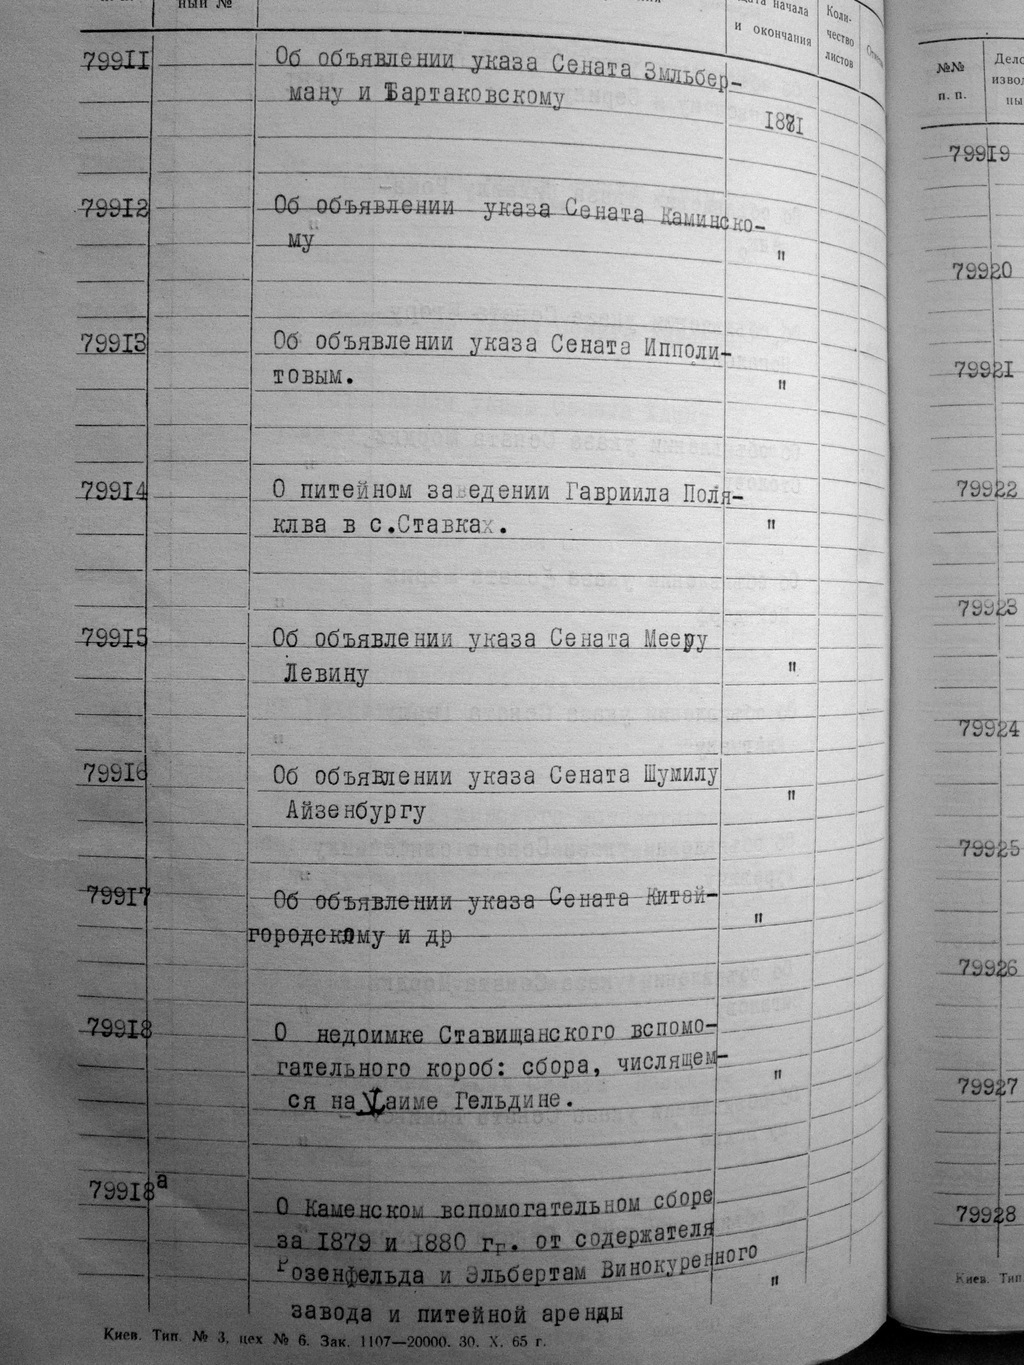 ный №
дата начала
и окончания
Коли-
чество
листов
79911
Об объявлении указа Сената Змльбер-
ману и Бартаковскому
1881
79912
Об объявлении указа Сената Каминско-
му
"
79913
Об объявлении указа Сената Ипполи-
товым.
"
79914
О питейном заведении Гавриила Поля-
клва в с.Ставках.
"
79915
Об объявлении указа Сената Мееру
Левину
"
79916
Об объявлении указа Сената Шумилу
Айзенбургу
"
79917
Об объявлении указа Сената Китай-
городскому и др
"
79918
О недоимке Ставищанского вспомо-
гательного короб: сбора, числящем-
ся на Хаиме Гельдине.
"
79918а
О Каменском вспомогательном сборе
за 1879 и 1880 гг. от содержателя
Розенфельда и Эльбертам Винокуренного
"
завода и питейной аренды
Киев. Тип. № 3, цех № 6. Зак. 1107—20000. 30. X. 65 г.
№№
п. п.
79919
79920
79921
79922
79923
79924
79925
79926
79927
79928
Киев. Тип.